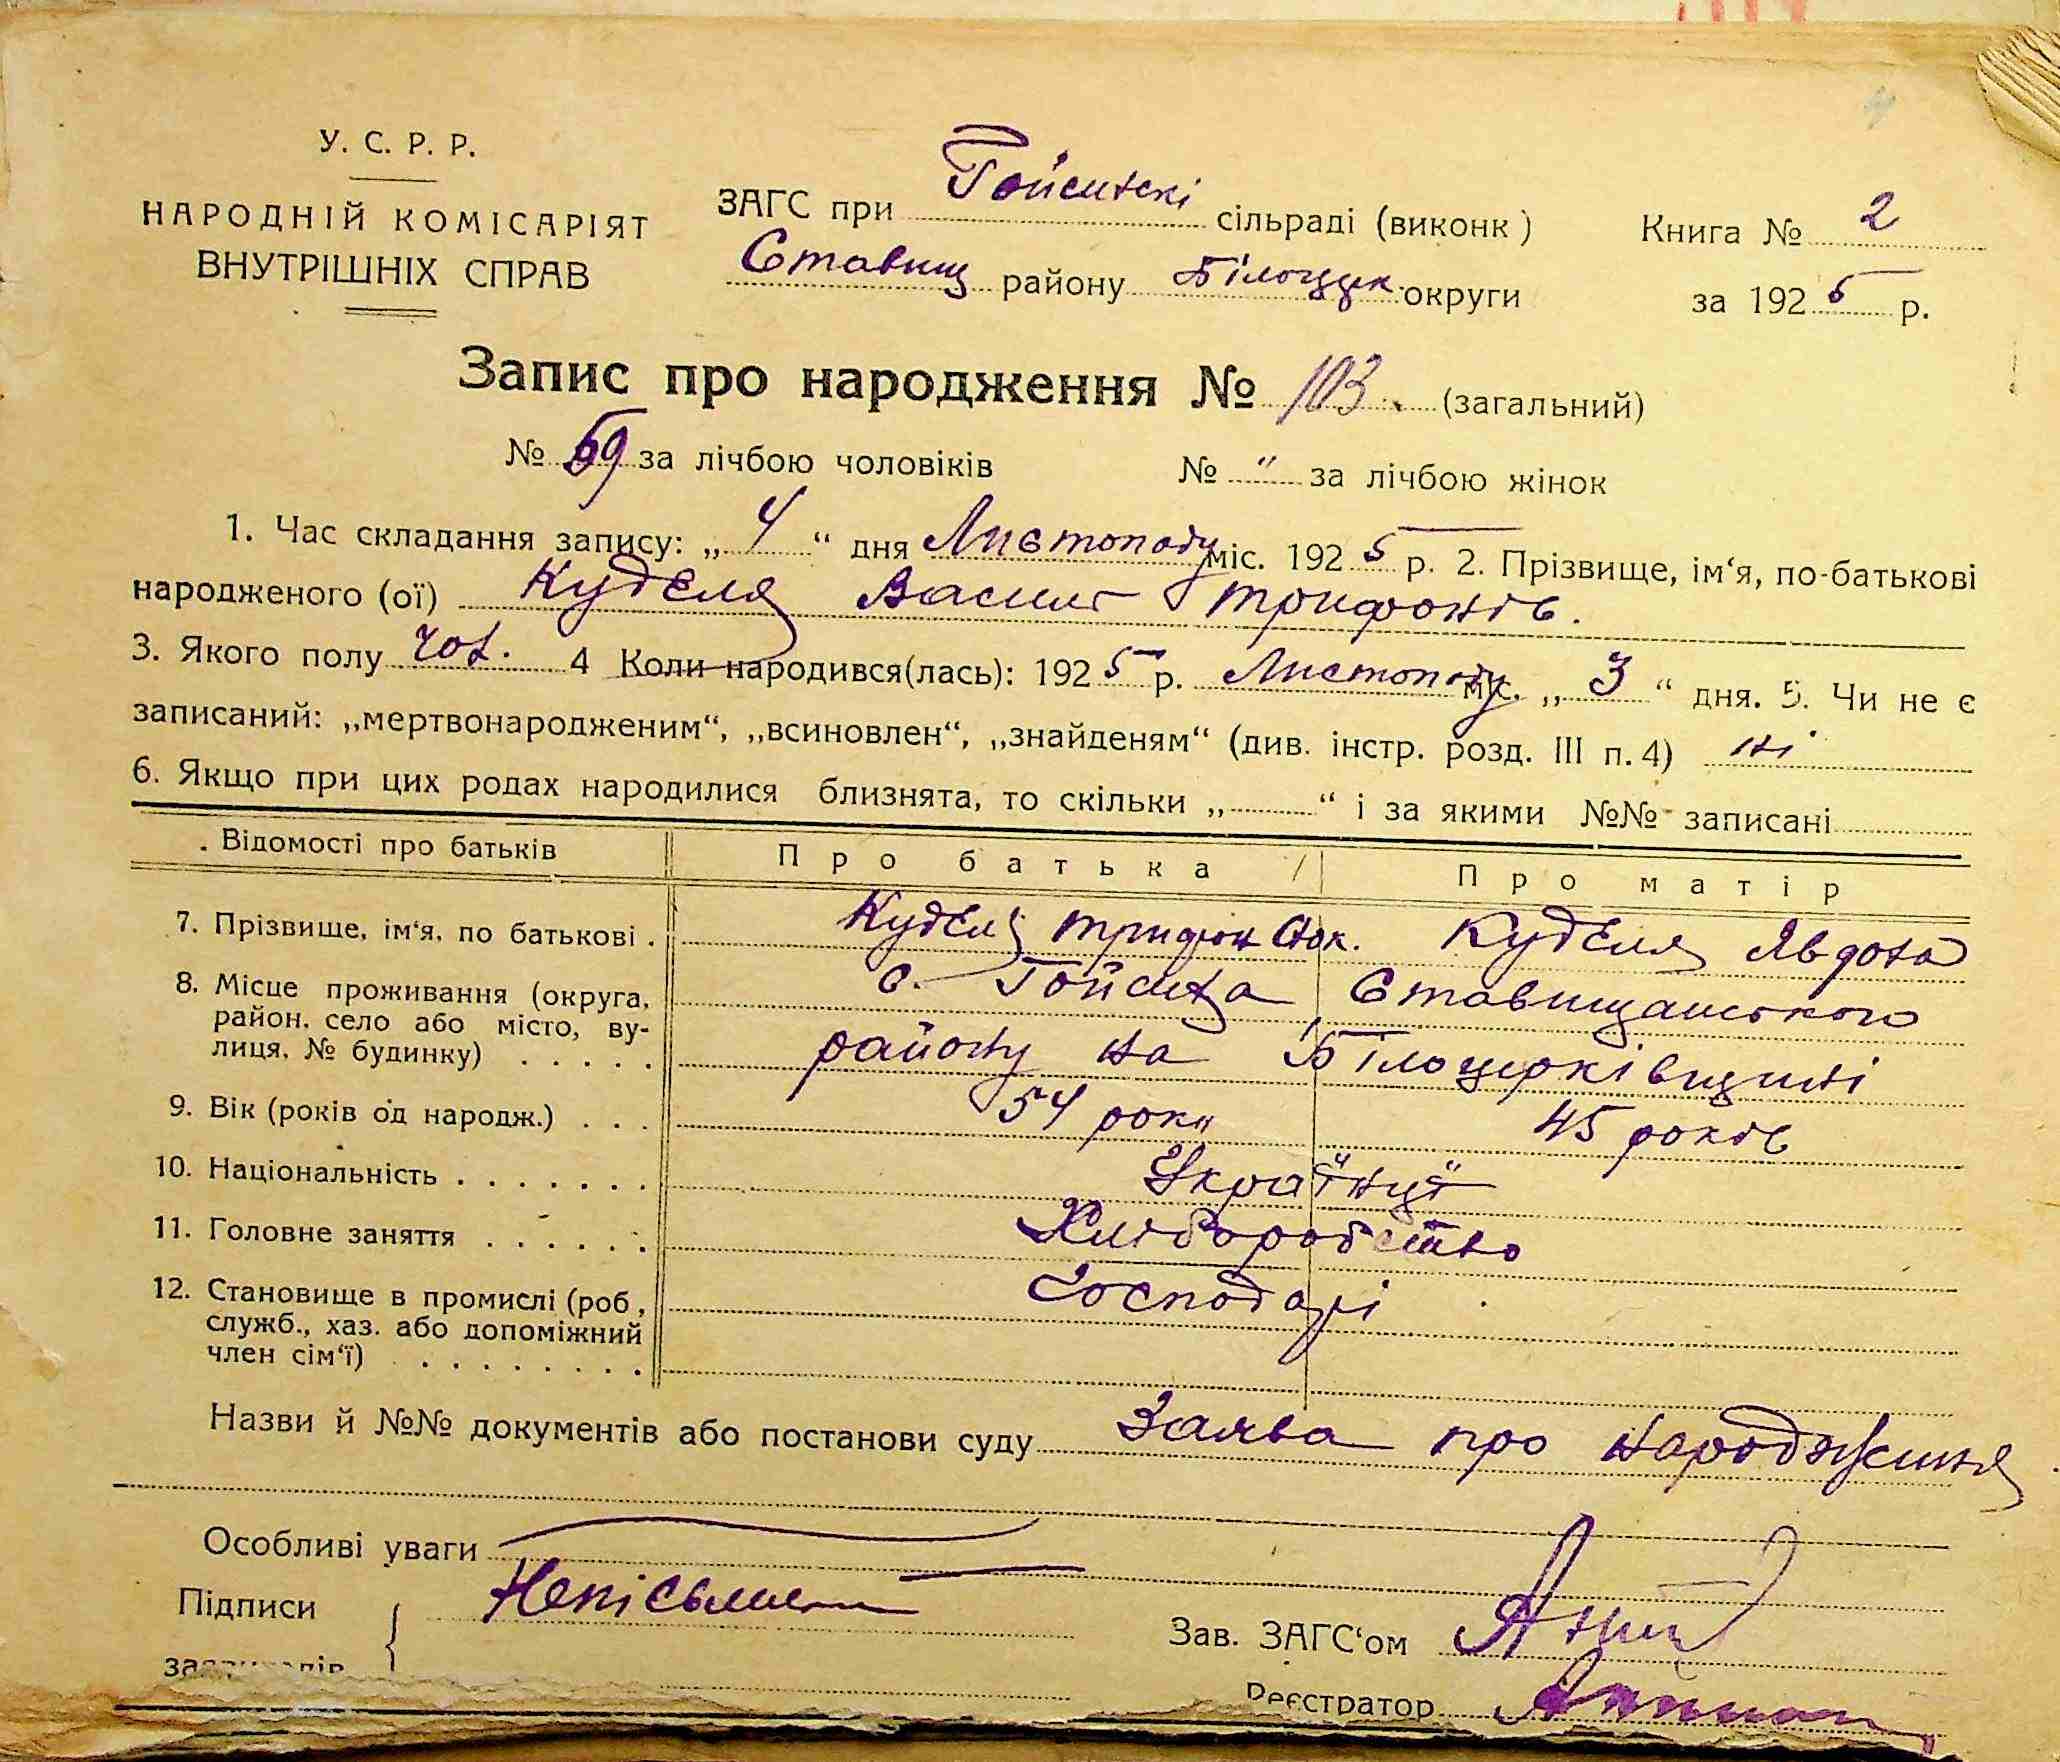 У. С. Р. Р.
НАРОДНІЙ КОМІСАРІЯТ
ВНУТРІШНІХ СПРАВ
ЗАГС при Гойситскі сільраді (виконк)
Ставищ району Білоцерк округи
Книга № 2
за 1925 р.
Запис про народження № 103. (загальний)
№ 59 за лічбою чоловіків № " за лічбою жінок
1. Час складання запису: „ 4 “ дня Листопаду міс. 1925 р. 2. Прізвище, ім‘я, по-батькові
народженого (ої) Куделя Василь Трифонів.
3. Якого полу чол. 4 Коли народився(лась): 1925 р. Листопаду міс. „ 3 “ дня. 5. Чи не є
записаний: „мертвонародженим“, „всиновлен“, „знайденям“ (див. інстр. розд. III п. 4) ні
6. Якщо при цих родах народилися близнята, то скільки „ “ і за якими №№ записані
Відомості про батьків Про батька Про матір
7. Прізвище, ім‘я, по батькові . Куделя Трифон Куделя Явдоха
8. Місце проживання (округа, с. Гойсиха Ставищанського
район, село або місто, ву-
лиця, № будинку) . . . . . району на Білоцерківщині
9. Вік (років од народж.) . . . 54 роки 45 років
10. Національність . . . . . . . Українці
11. Головне заняття . . . . . . Хліборобство
12. Становище в промислі (роб, Господарі
служб., хаз. або допоміжний
член сім‘ї) . . . . . . . .
Назви й №№ документів або постанови суду Заява про народження
Особливі уваги
Підписи Неписьмен
Зав. ЗАГС‘ом
Реєстратор